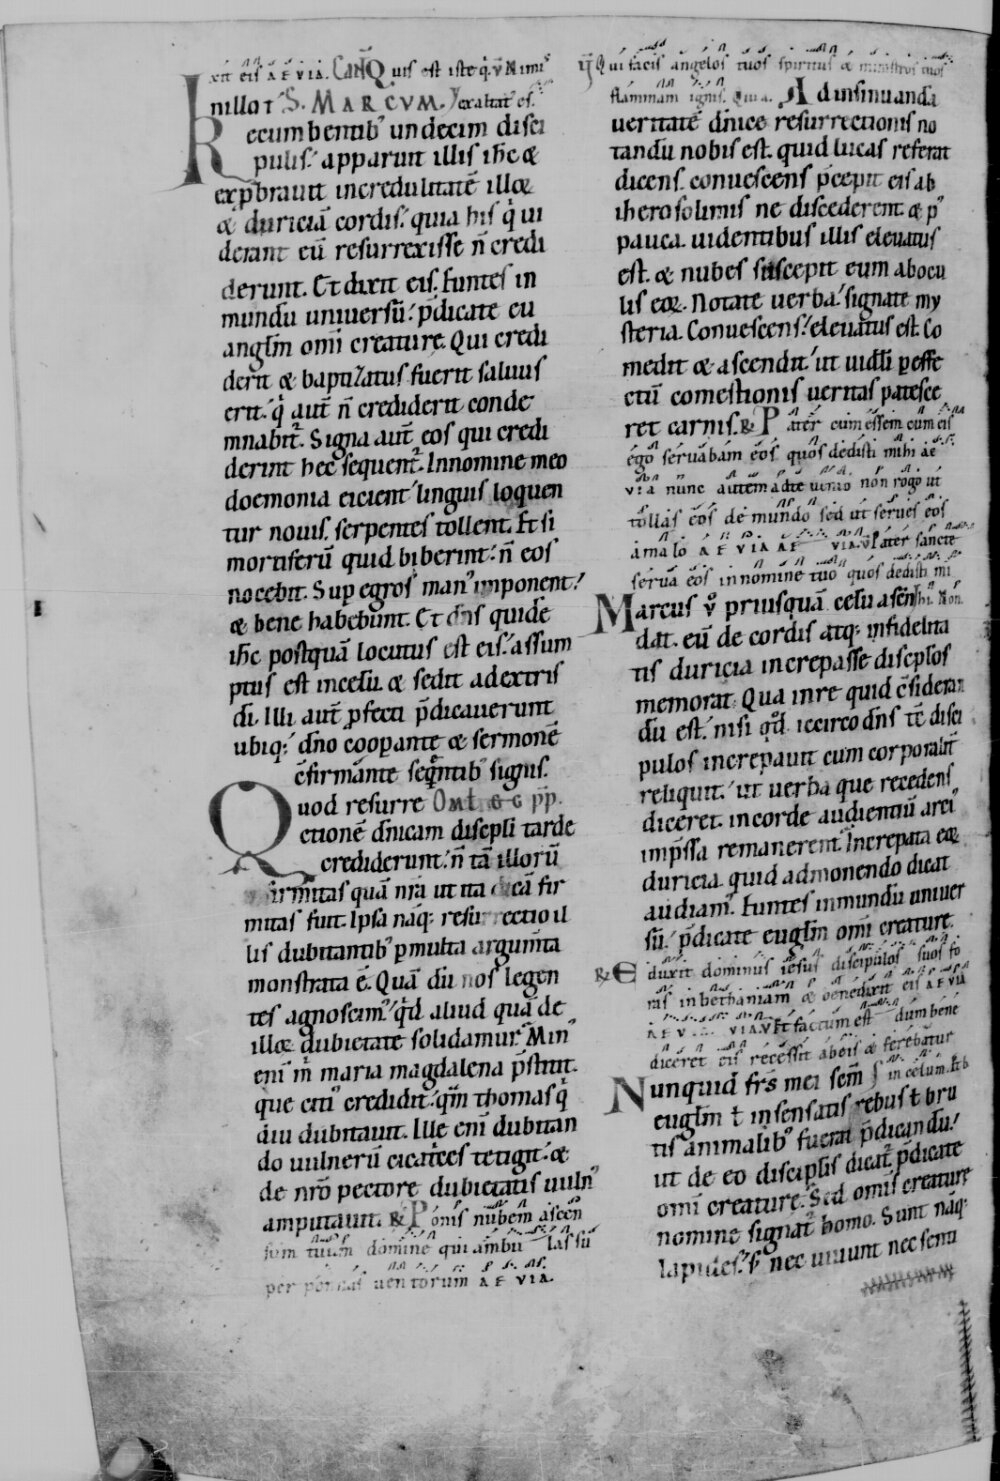 xit eis AEVIA. CaN̄ Quis est iste q̇. V̄ Nimis
In illo t̄ S. MARCVM. exaltat' es.
Recumbentib' undecim disci
pulis.' apparuit illis ih̄c &
exp̄bravit incredulitatē illoꝝ
& duriciā cordis.' quia his q̇ ui
derant eū resurrexisse n̄ credi
derunt. Et dixit eis. Euntes in
mundū universū.' p̄dicate eu
angl̄m om̄i creature. Qui credi
derit & baptizatus fuerit saluus
erit.' q̇ aut̄ n̄ crediderit conde
mnabit᷑. Signa aut̄ eos qui credi
derint hec sequent᷑. In nomine meo
doemonia eicient' linguis loquen
tur nouis. serpentes tollent. Et si
mortiferū quid biberint.' n̄ eos
nocebit. Sup egros man' imponent.'
& bene habebunt. Et dn̄s quidē
ih̄c postquā locutus est eis.' assum
ptus est in celū. & sedit ad extris
dī. Illi aut̄ ꝓfecti p̄dicauerunt
ubiq;' dn̄o coopante & sermonē
c̄firmante seq̄ntib' signis.
Quod resurre OML̄ G G P̄P.
ctionē dn̄icam discipl̄i tarde
crediderunt.' n̄ tā illorū
infirmitas quā nr̄a ut ita dicā fir
mitas fuit. Ipsa nāq; resurrectio il
lis dubitantib' ꝑ multa argum̄ta
monstrata ē. Quā dū nos legen
tes agnoscim'.' qd̄ aliud quā de
illoꝝ dubietate solidamur. Min'
eni m̄ maria magdalena p̄stitit.
que citi' credidit.' qm̄ thomas q̇
diu dubitauit. Ille enī dubitan
do uulnerū cicatrices tetigit.' &
de nr̄o pectore dubietatis uuln'
amputauit. ℟ Ponis nubem ascen
sum tuum domine qui ambulas su
per pennas uentorum AEVIA.
V̄ Qui facis angelos tuos spiritus & ministros tuos
flammam ignis. Qui a. Ad insinuandā
ueritatē dn̄ice resurrectionis no
tandū nobis est. quid lucas referat
dicens. conuescens p̄cepit eis ab
iherosolimis ne discederent. & p'
pauca. uidentibus illis eleuatus
est. & nubes suscepit eum ab ocu
lis eoꝝ. Notate uerba.' signate my
steria. Conuescens.' eleuatus est. Co
medit & ascendit.' ut uidl̄i ꝑ effe
ctū comestionis ueritas patesce
ret carnis. ℟ Pater cum essem cum eis
ego seruabam eos quos dedisti mihi ae
via nunc autem ad te uenio non rogo ut
tollas eos de mundo sed ut serues eos
a malo AEVIA AE VIA. V̄ Pater sancte
serua eos in nomine tuo quos dedisti mi
Marcus v̊ priusquā celū ascen hi. Non.
dat. eū de cordis atq; infidelita
tis duricia increpasse discipl̄os
memorat. Qua in re quid c̄sideran
dū est.' nisi qd̄ iccirco dn̄s tc̄ disci
pulos increpauit cum corporalit̄
reliquit.' ut uerba que recedens
diceret. in corde audientiū arci'
imp̄ssa remanerent. Increpata eoꝝ
duricia. quid admonendo dicat
audiam'. Euntes in mundū univer
sū.' p̄dicate eugl̄m om̄i creature.
℟ Eduxit dominus iesus discipulos suos fo
ras in bethaniam & benedixit eis AEVIA
AEV VIA. V̄ Et factum est dum bene
diceret eis recessit ab eis & ferebatur
Nunquid frs̄ mei sc̄m in celum. Et b
eugl̄m ł in sensatis rebus ł bru
tis animalib' fuerat p̄dicandū.'
ut de eo discipl̄is dicat᷑ p̄dicate
om̄i creature. Sed om̄is creature
nomine signat᷑ homo. Sunt nāq;
lapides.' s; nec uiuunt nec senti